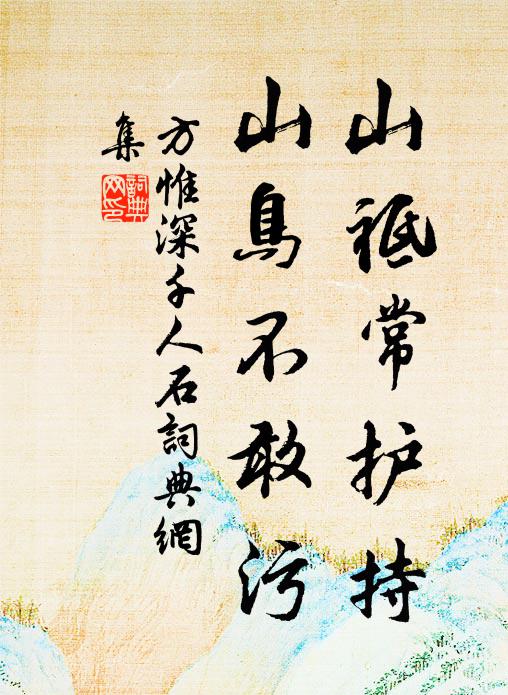 山祗常护持
山鳥不敢污
方惟深千人石詞典網
集
詞典網印